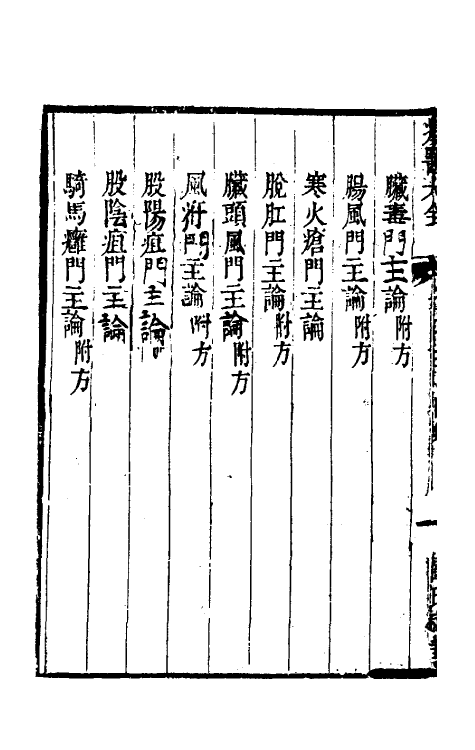 臟毒門主論附方
腸風門主論附方
寒火瘡門主論
脫肛門主論附方
臟頭風門主論附方
門主論附方
股陽疽門主論
股陰疽門主論
騎馬癰門主論附方